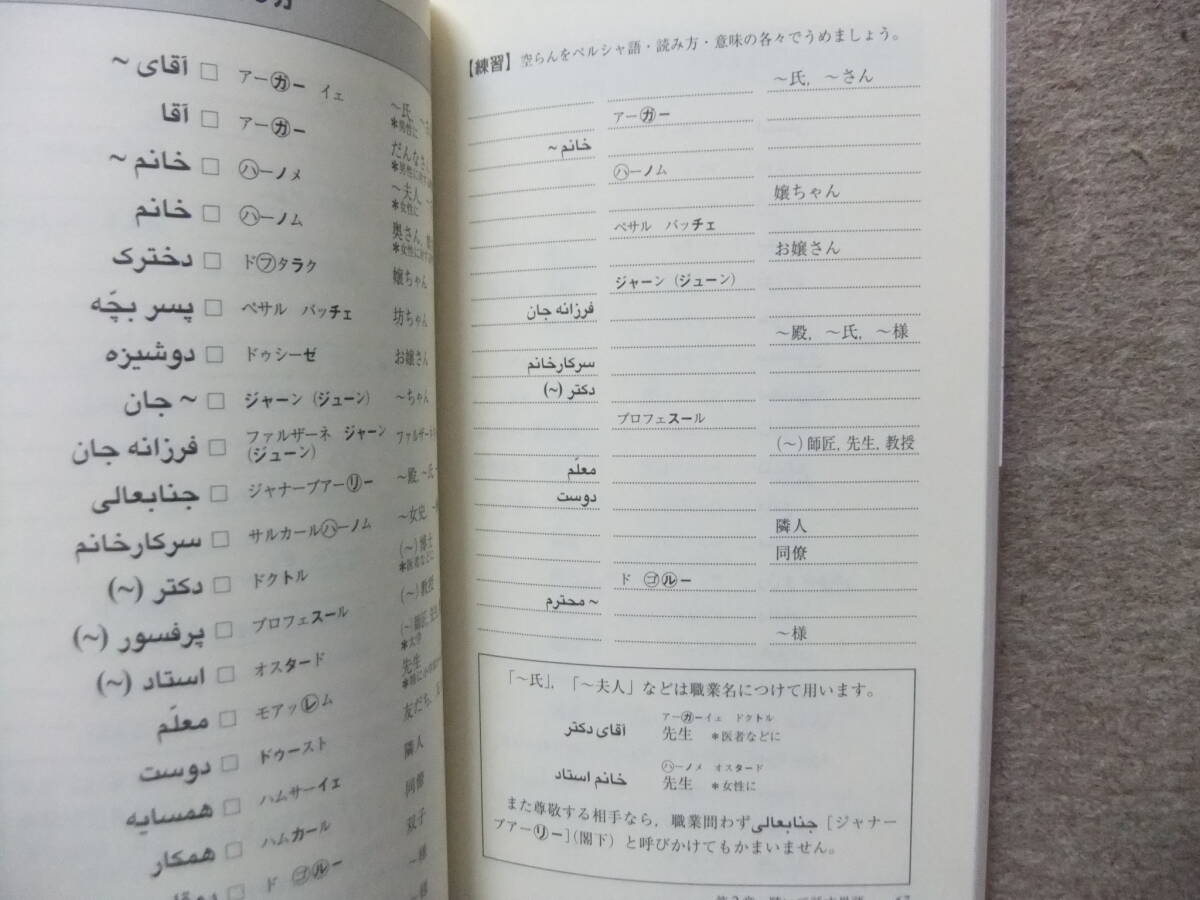 آقای ~ □ アーガー イェ ～氏, ～さ
＊男性に
آقا □ アーガー だんなさ
خانم ~ □ ハーノメ ～夫人,
＊女性に
خانم □ ハーノム 奥さん,
＊女性に対す
دخترک □ ドフタラク 嬢ちゃん
پسر بچّه □ ペサル バッチェ 坊ちゃん
دوشیزه □ ドゥシーゼ お嬢さん
~ جان □ ジャーン (ジューン) ～ちゃん
فرزانه جان □ ファルザーネ ジャーン ファルザーネ
(ジューン)
جنابعالی □ ジャナーブアーリー ～殿, ～氏
سرکارخانم □ サルカールハーノム ～女史,
دکتر (~) □ ドクトル (～)博士
＊医者などに
پرفسور (~) □ プロフェスール (～)教授
استاد (~) □ オスタード (～)師匠,
＊大学
معلّم □ モアッレム 先生
دوست □ ドゥースト 友だち,
همسایه □ ハムサーイェ 隣人
همکار □ ハムカール 同僚
□ ド ゴルー 双子
～様
【練習】 空らんをペルシャ語・読み方・意味の各々でうめましょう。
～氏, ～さん
アーガー
خانم ~
ハーノム
嬢ちゃん
ペサル バッチェ
お嬢さん
ジャーン (ジューン)
فرزانه جان
～殿, ～氏, ～様
سرکارخانم
دکتر (~)
プロフェスール
(～)師匠, 先生, 教授
معلّم
دوست
隣人
同僚
ド ゴルー
~ محترم
～様
「～氏」, 「～夫人」などは職業名につけて用います。
アーガーイェ ドクトル
آقای دکتر 先生 ＊医者などに
ハーノメ オスタード
خانم استاد 先生 ＊女性に
また尊敬する相手なら, 職業問わずجنابعالی [ジャナー
ブアーリー](閣下) と呼びかけてもかまいません。